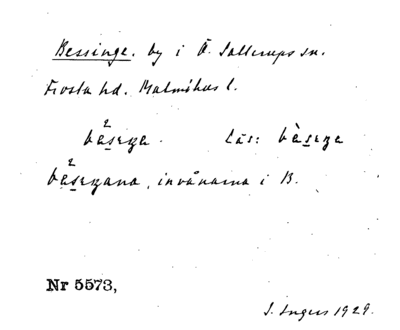 Bessinge. by i Ö. Sallerups sn.
Frosta hd. Malmöhus l.
bèsega. läs: bèsega
bèsegana, invånarna i B.
Nr 5573,
I. Ingers 1929.